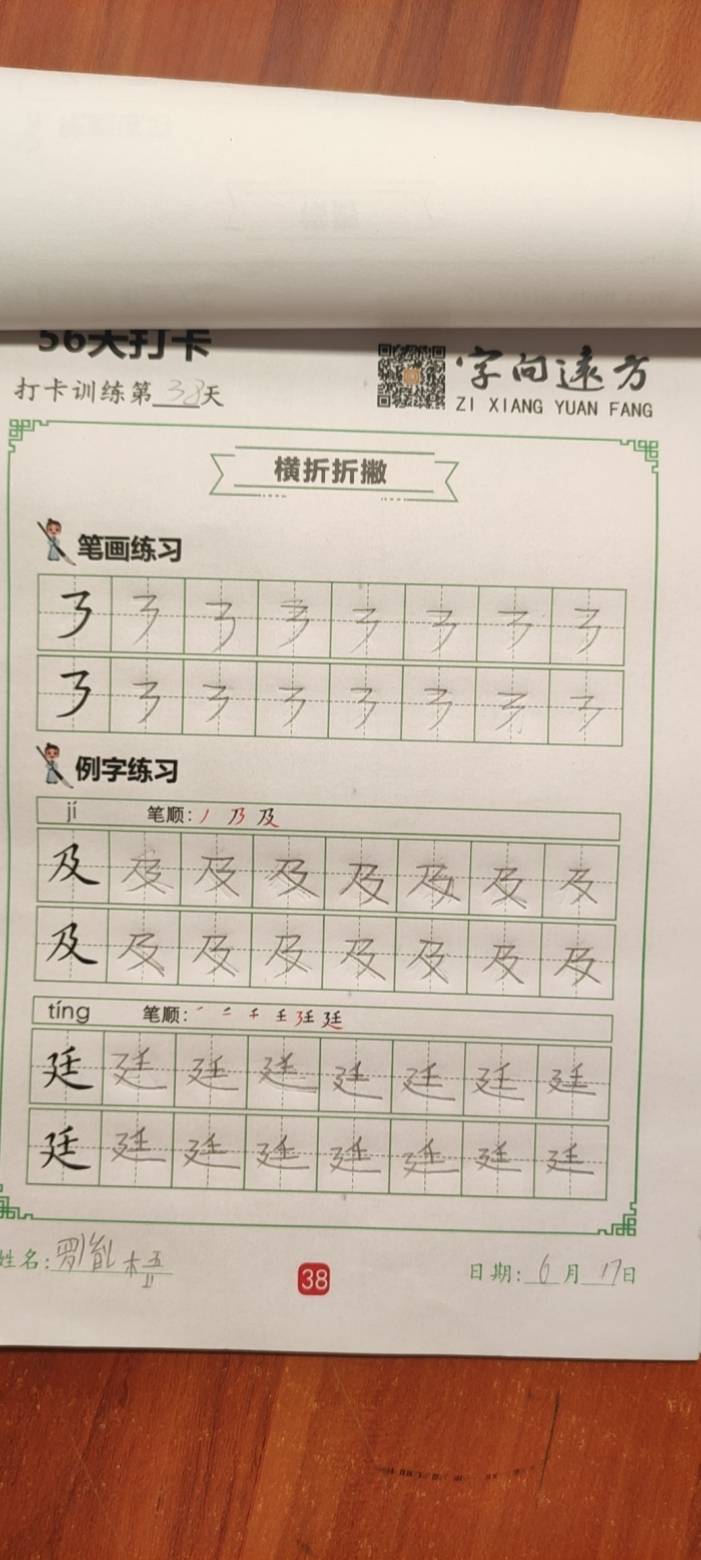 56天打卡
打卡训练第38天
字向远方
ZI XIANG YUAN FANG
横折折撇
笔画练习
例字练习
jí 笔顺: 丿 乃 及
及 及 及 及 及 及 及 及
及 及 及 及 及 及 及 及
tíng 笔顺: 廷
廷 廷 廷 廷 廷 廷 廷 廷
廷 廷 廷 廷 廷 廷 廷 廷
姓名:
38
日期: 6月17日